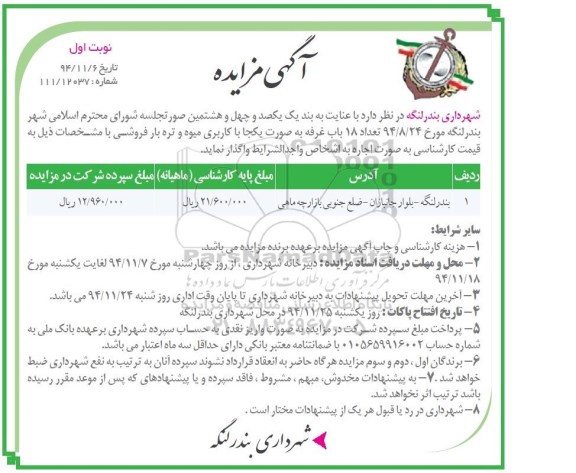 نوبت اول
آگهی مزایده
تاریخ ۹۴/۱۱/۶
شماره : ۱۱۱/۱۲۰۳۷
شهرداری بندرلنگه در نظر دارد با عنایت به بند یک یکصد و چهل و هشتمین صورتجلسه شورای محترم اسلامی شهر
بندرلنگه مورخ ۹۴/۸/۲۴ تعداد ۱۸ باب غرفه به صورت یکجا با کاربری میوه و تره بار فروشی با مشخصات ذیل به
قیمت کارشناسی به صورت اجاره به اشخاص واجدالشرایط واگذار نماید.
ردیف آدرس مبلغ پایه کارشناسی (ماهیانه) مبلغ سپرده شرکت در مزایده
۱ بندرلنگه -بلوار جانبازان -ضلع جنوبی بازارچه ماهی ۲۱/۶۰۰/۰۰۰ ریال ۱۲/۹۶۰/۰۰۰ ریال
سایر شرایط:
۱- هزینه کارشناسی و چاپ آگهی مزایده برعهده برنده مزایده می باشد.
۲- محل و مهلت دریافت اسناد مزایده : دبیرخانه شهرداری ، از روز چهارشنبه مورخ ۹۴/۱۱/۷ لغایت یکشنبه مورخ
۹۴/۱۱/۱۸
۳- آخرین مهلت تحویل پیشنهادات به دبیرخانه شهرداری تا پایان وقت اداری روز شنبه ۹۴/۱۱/۲۴ می باشد.
۴- تاریخ افتتاح پاکات : روز یکشنبه ۹۴/۱۱/۲۵ در محل شهرداری بندرلنگه
۵- پرداخت مبلغ سپرده شرکت در مزایده به صورت واریز نقدی به حساب سپرده شهرداری برعهده بانک ملی به
شماره حساب ۰۱۰۵۶۵۹۹۱۶۰۰۲ با ضمانتنامه معتبر بانکی دارای حداقل سه ماه اعتبار می باشد.
۶- برندگان اول ، دوم و سوم مزایده هرگاه حاضر به انعقاد قرارداد نشوند سپرده آنان به ترتیب به نفع شهرداری ضبط
خواهد شد .۷- به پیشنهادات مخدوش، مبهم ، مشروط ، فاقد سپرده و یا پیشنهادهای که پس از موعد مقرر رسیده
باشد ترتیب اثر نخواهد شد.
۸- شهرداری در رد یا قبول هر یک از پیشنهادات مختار است .
شهرداری بندرلنگه